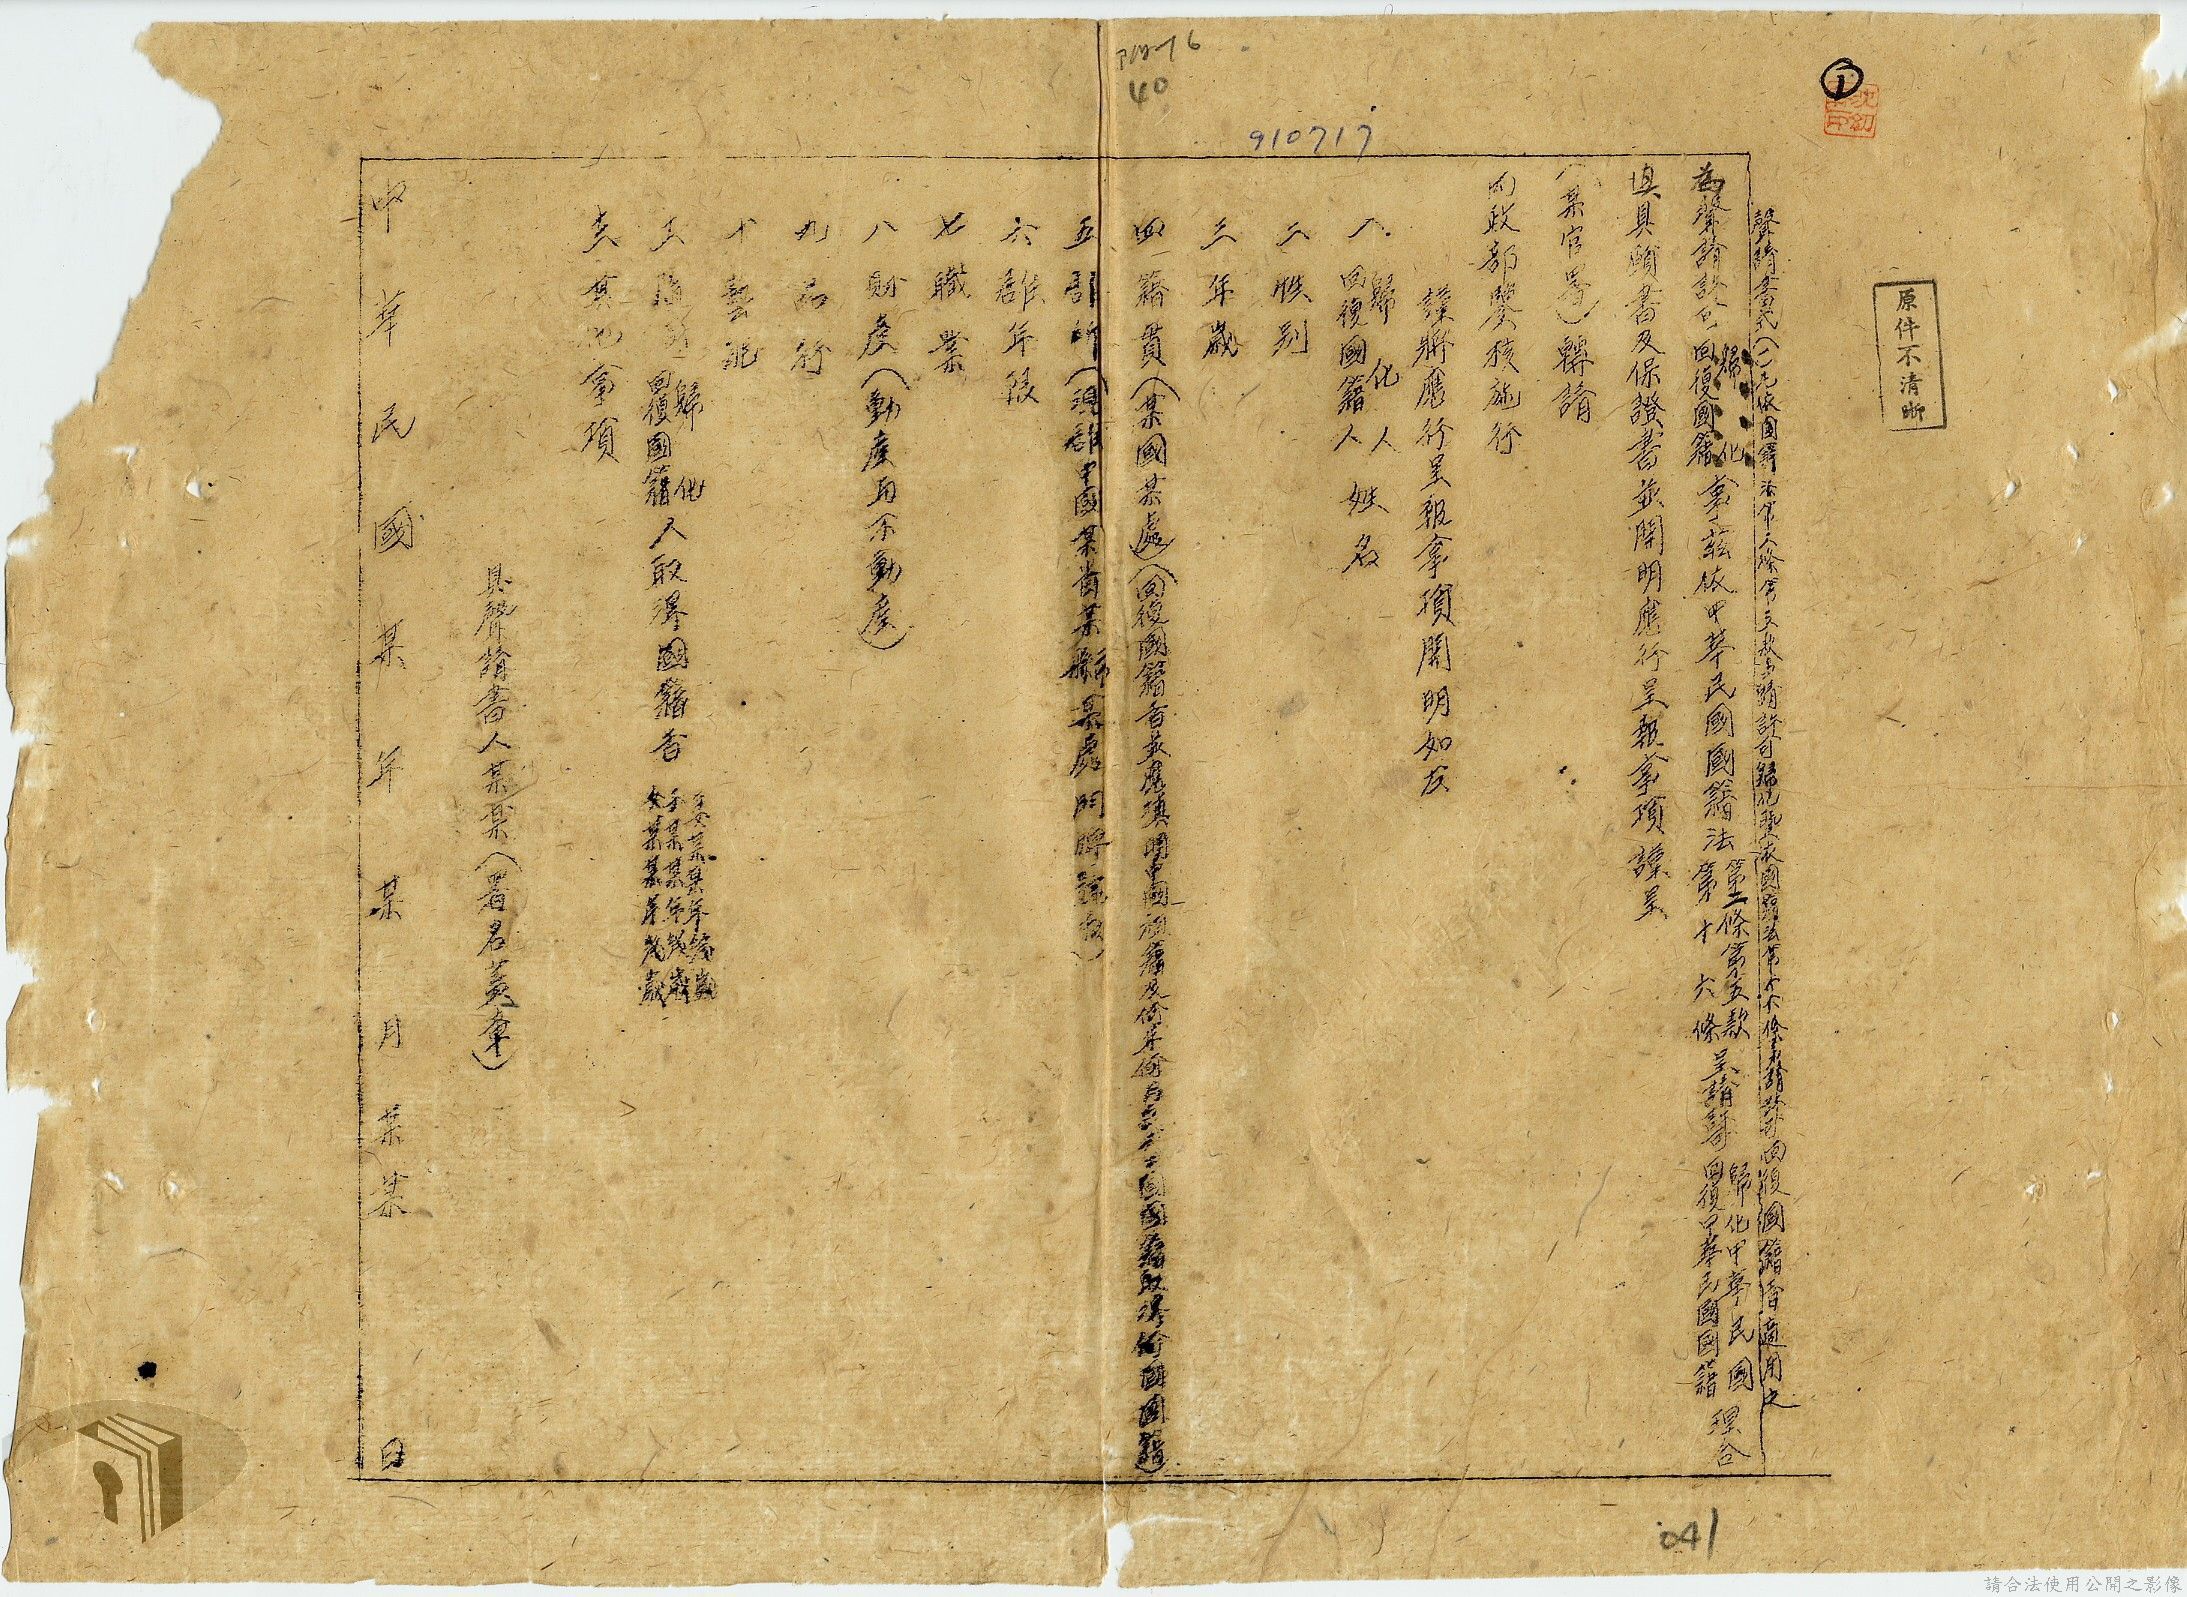 40
910717
1
原件不清晰
聲請書式(一)凡依國籍法第二條第五款聲請許可歸化暨依國籍法第十六條聲請許可回復國籍者適用之
為聲請許可歸化回復國籍事茲依中華民國國籍法第二條第五款第十六條呈請許可歸化中華民國回復中華民國國籍理合
填具願書及保證書並開明應行呈報事項謹呈
(某官署)轉請
內政部鑒核施行
謹將應行呈報事項開明如左
一.歸化人回復國籍人姓名
二 性別
三 年歲
四 籍貫(某國某處)(回復國籍者並應填明中國祖籍及
五 住所(現住中國某省某縣市某處門牌號數)
六 住年限
七 職業
八 財產(動產與不動產)
九 品行
十 藝能
歸化回復國籍人取得國籍者 妻某某年幾歲 子某某年幾歲 女某某年幾歲
其他事項
具聲請書人某某(署名蓋章)
中華民國某年某月某某日
041
請合法使用公開之影像